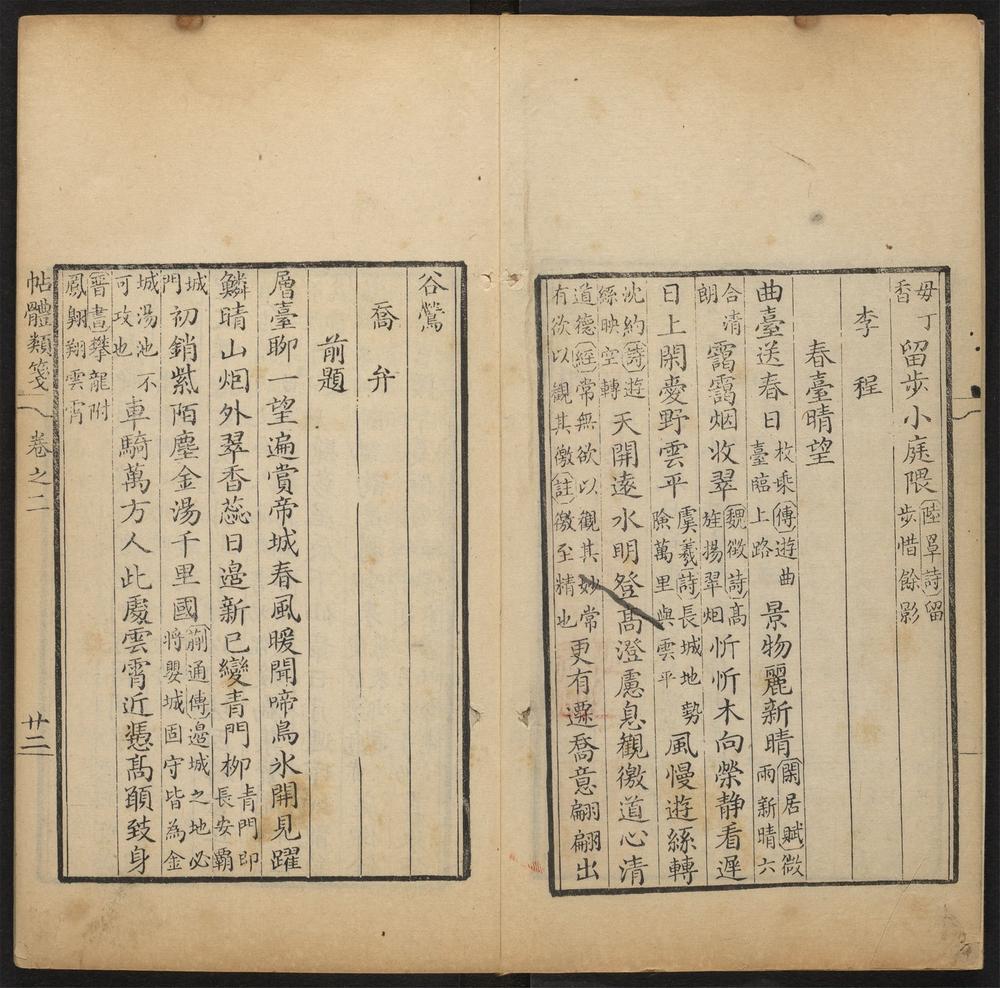 毋丁香留步小庭隈陸罩詩留步惜餘影
李程
春臺晴望
曲臺送春日枚乘傳遊曲臺臨上路景物麗新晴閑居賦微雨新晴六
合清朗靄靄烟收翠魏徵詩高旌揚翠烟忻忻木向榮静看遲
日上閑愛野雲平虞羲詩長城地勢險萬里與雲平風慢遊絲轉
沈約詩遊絲映空轉天開逺水明登髙澄慮息觀徼道心清
道德經常無欲以觀其妙常有欲以觀其徼註徼至精也更有遷喬意翩翩出
谷鶯
喬弁
前題
層臺聊一望遍賞帝城春風暖聞啼鳥氷開見躍
鱗晴山烟外翠香蘂日邉新已變青門柳青門即長安覇
城門初銷紫陌塵金湯千里國蒯通傳邉城之地必將嬰城固守皆為金
城湯池不可攻也車騎萬方人此處雲霄近憑髙頋致身
晉書攀龍附鳳翺翔雲霄
帖體類箋 卷之二 廿二